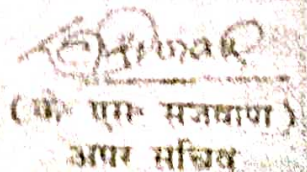 ( के० एम० सजवाण )
अपर सचिव